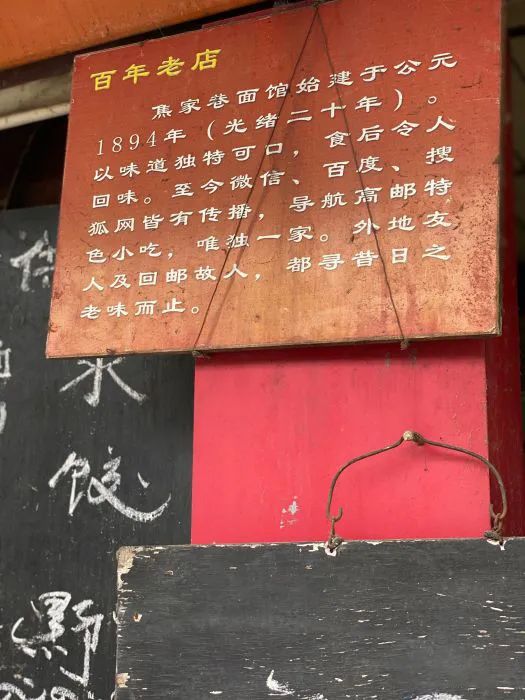 百年老店
焦家巷面馆始建于公元
1894年（光绪二十年）。
以味道独特可口，食后令人
回味。至今微信、百度、搜
狐网皆有传播，导航高邮特
色小吃，唯独一家。外地友
人及回邮故人，都寻昔日之
老味而止。
水
饺
野